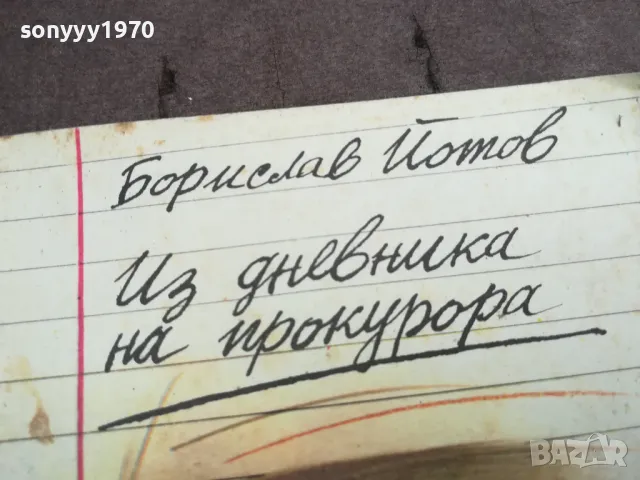 sonyyy1970
Борислав Йотов
Из дневника
на прокурора
BAZAR